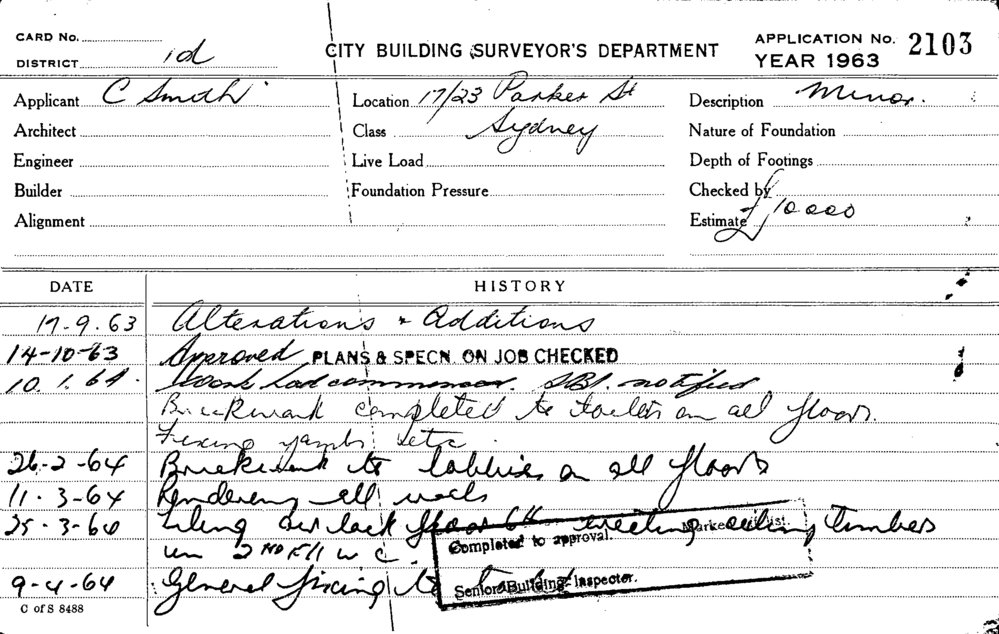 CARD No.
DISTRICT
CITY BUILDING SURVEYOR'S DEPARTMENT
APPLICATION No. 2103
YEAR 1963
Applicant C Smith
Location 17/23 Parker St
Description Minor.
Architect
Class Sydney
Nature of Foundation
Engineer
Live Load
Depth of Footings
Builder
Foundation Pressure
Checked by
Alignment
Estimate £10000
DATE HISTORY
17-9.63 Alterations & Additions
14-10-63 Approved PLANS & SPECN. ON JOB CHECKED
10.1.64. Work had commenced. notified.
Brickwork completed to toilets on all floors.
Fixing jambs etc.
26-2-64 Brickwork to lobbies on all floors
11.3-64 Rendering all walls
25.3-64 erecting ceiling timbers
2nd Fl W C
Completed to approval.
9-4-64 General fixing to
Senior Building Inspector.
C of S 8488